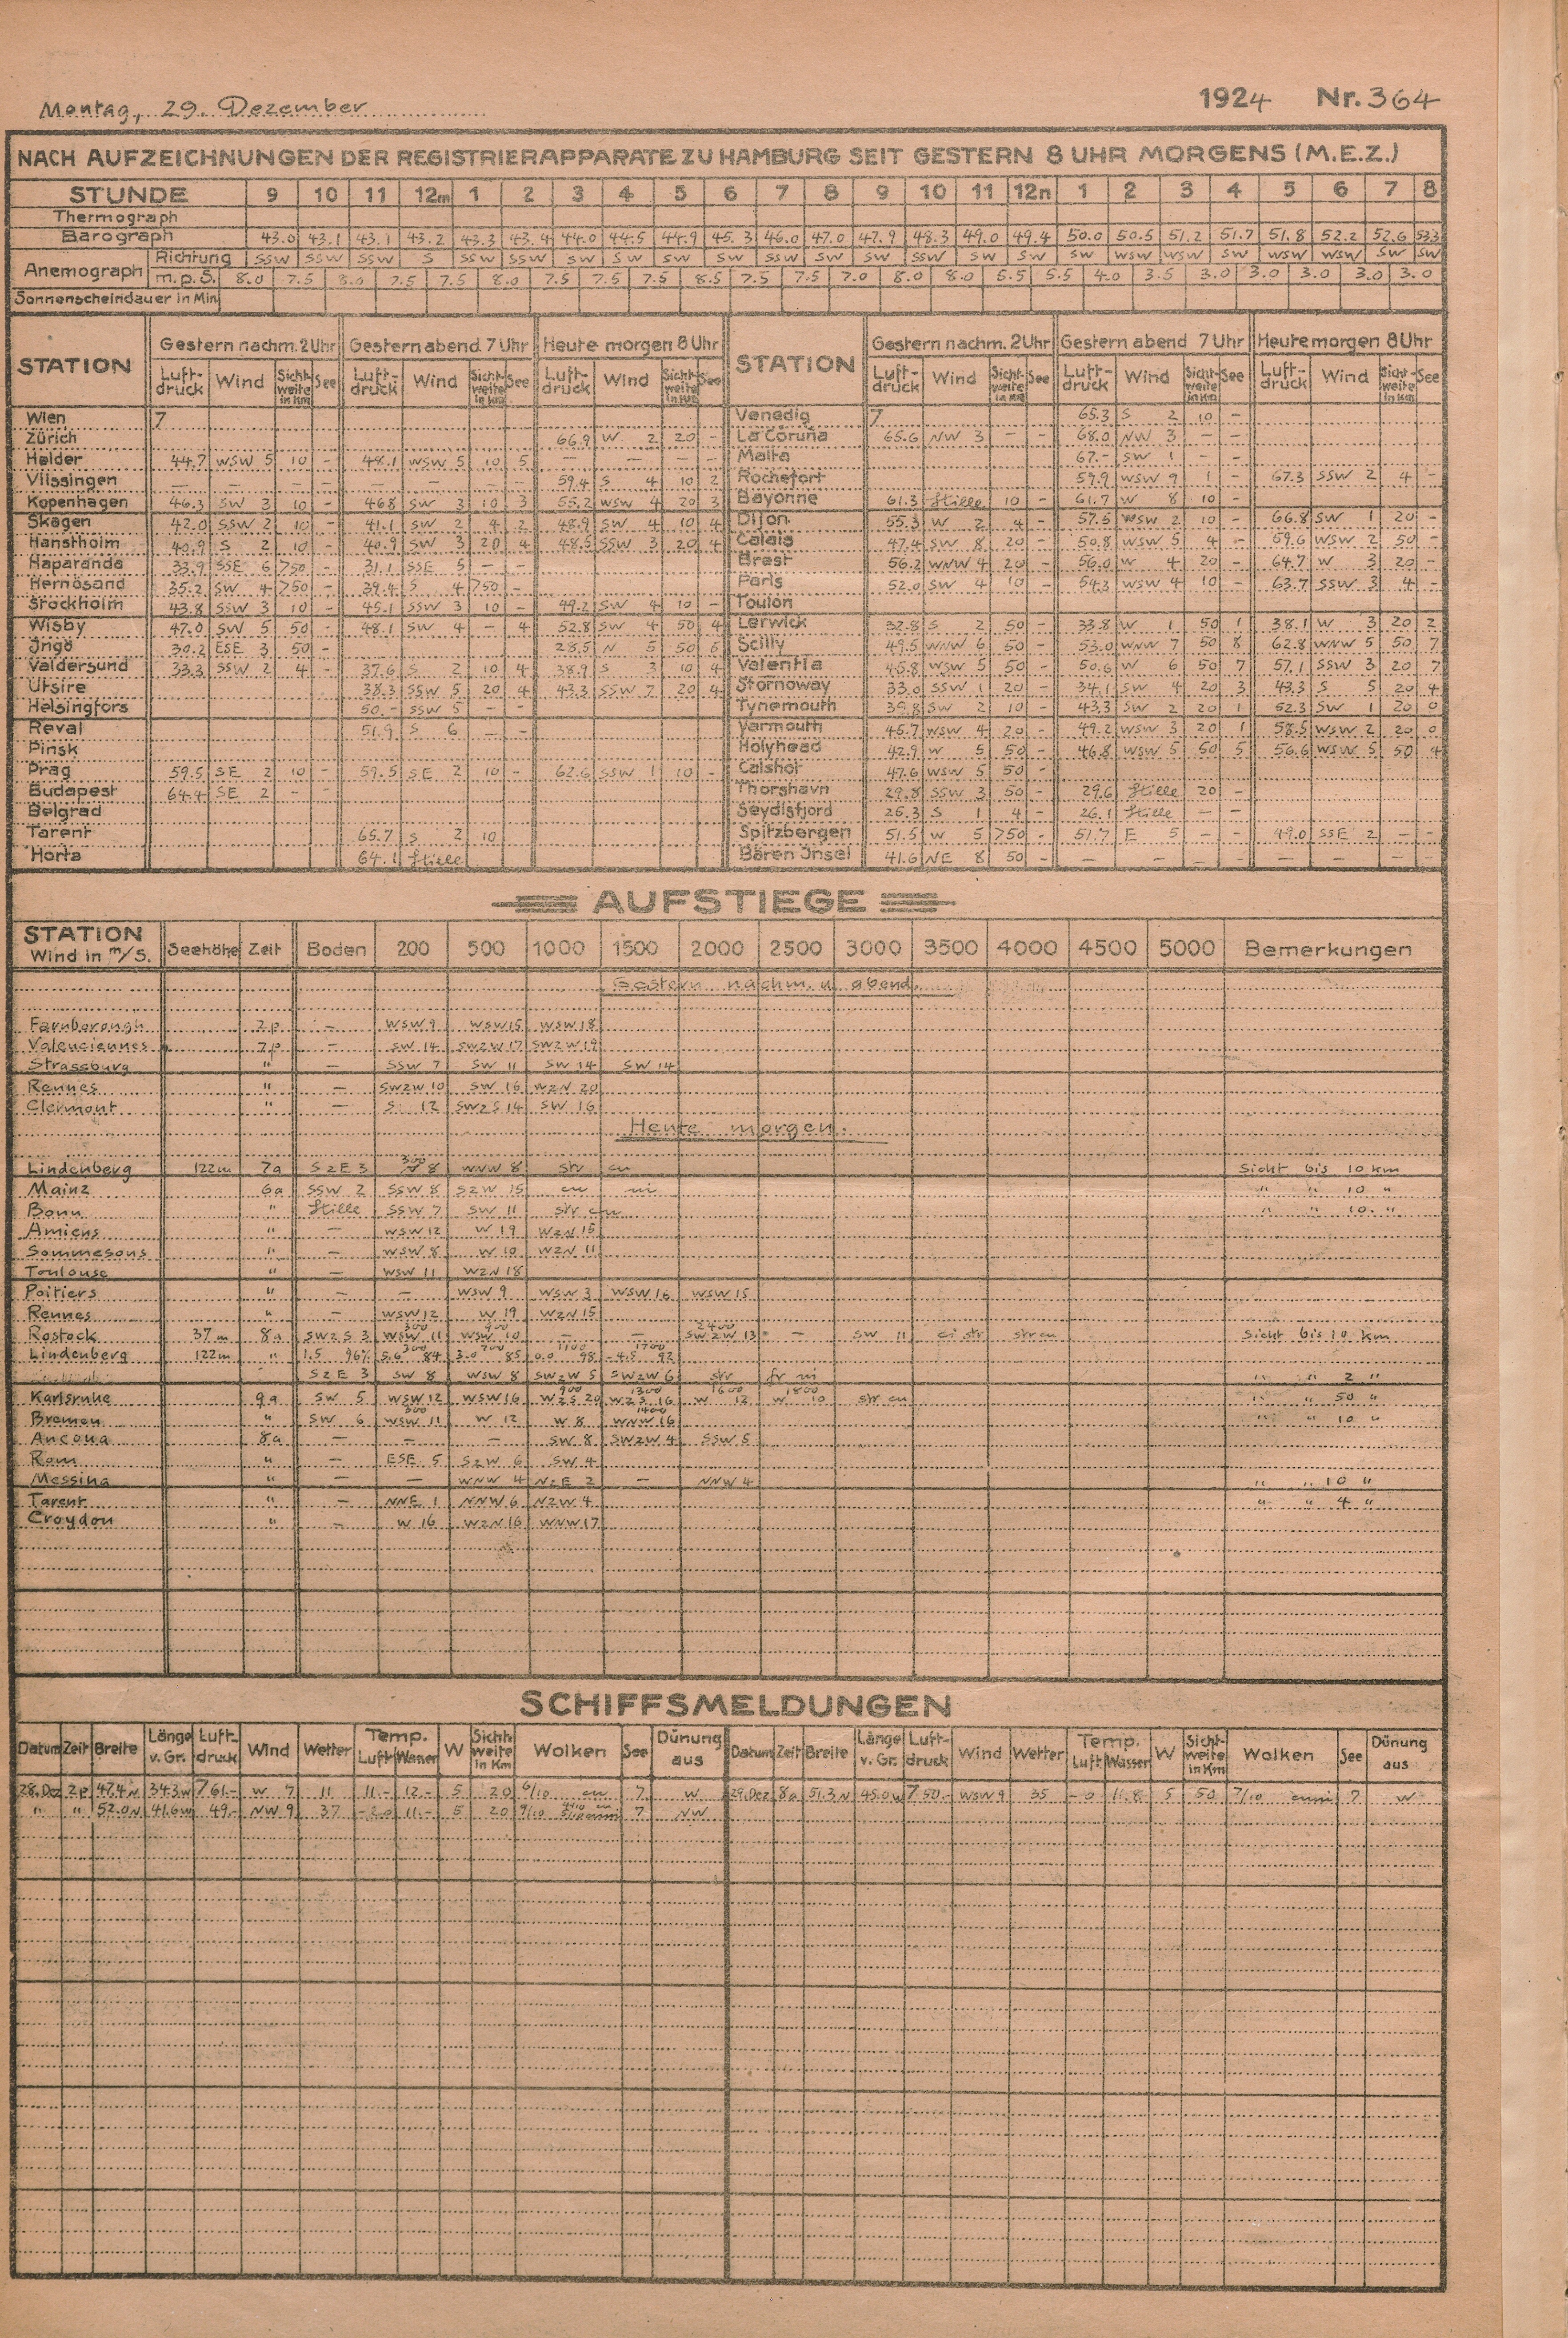 Montag, 29. Dezember 1924 Nr. 364
NACH AUFZEICHNUNGEN DER REGISTRIERAPPARATE ZU HAMBURG SEIT GESTERN 8 UHR MORGENS (M.E.Z.)
STUNDE 9 10 11 12m 1 2 3 4 5 6 7 8 9 10 11 12n 1 2 3 4 5 6 7 8
Thermograph
Barograph 43.0 43.1 43.1 43.2 43.3 43.4 44.0 44.5 44.9 45.3 46.0 47.0 47.9 48.3 49.0 49.4 50.0 50.5 51.2 51.7 51.8 52.2 52.6 53.3
Anemograph Richtung SSW SSW SSW S SSW SSW SW SW SW SW SSW SW SW SSW SW SW SW WSW WSW SW WSW WSW SW
m.p.S. 8.0 7.5 8.0 7.5 7.5 8.0 7.5 7.5 7.5 8.5 7.5 7.5 7.0 8.0 8.0 5.5 5.5 4.0 3.5 3.0 3.0 3.0 3.0 3.0
Sonnenscheindauer in Min.
STATION Gestern nachm. 2 Uhr Gestern abend 7 Uhr Heute morgen 8 Uhr STATION Gestern nachm. 2 Uhr Gestern abend 7 Uhr Heute morgen 8 Uhr
Luftdruck Wind Sichtweite in Km See Luftdruck Wind Sichtweite in Km See Luftdruck Wind Sichtweite in Km See Luftdruck Wind Sichtweite in Km See Luftdruck Wind Sichtweite in Km See Luftdruck Wind Sichtweite in Km See
Wien 7 Venedig 7 65.3 S 2 10 -
Zürich 66.9 W 2 20 - La Coruña 65.6 NW 3 - - 68.0 NW 3 - -
Helder 44.7 WSW 5 10 - 48.1 WSW 5 10 5 - - - - Malta 67.- SW 1 - -
Vlissingen - - - - - - - - 59.4 S 4 10 2 Rochefort 59.9 WSW 9 1 - 67.3 SSW 2 4 -
Kopenhagen 46.3 SW 3 10 - 46.8 SW 3 10 3 55.2 WSW 4 20 3 Bayonne 61.3 Stille 10 - 61.7 W 8 10 -
Skagen 42.0 SSW 2 10 - 41.1 SW 2 4 2 48.9 SW 4 10 4 Dijon 55.3 W 2 4 - 57.5 WSW 2 10 - 66.8 SW 1 20 -
Hanstholm 40.9 S 2 10 - 40.9 SW 3 20 4 48.5 SSW 3 20 4 Calais 47.4 SW 8 20 - 50.8 WSW 5 4 - 59.6 WSW 2 50 -
Haparanda 33.9 SSE 6 >50 - 31.1 SSE 5 - - Brest 56.2 WNW 4 20 - 56.0 W 4 20 - 64.7 W 3 20 -
Hernösand 35.2 SW 4 >50 - 39.4 S 4 >50 - Paris 52.0 SW 4 10 - 54.3 WSW 4 10 - 63.7 SSW 3 4 -
Stockholm 43.8 SSW 3 10 - 45.1 SSW 3 10 - 49.2 SW 4 10 - Toulon
Wisby 47.0 SW 5 50 - 48.1 SW 4 - 4 52.8 SW 4 50 4 Lerwick 32.8 S 2 50 - 33.8 W 1 50 1 38.1 W 3 20 2
Ingö 30.2 ESE 3 50 - 28.5 N 5 50 6 Scilly 49.5 WNW 6 50 - 53.0 WNW 7 50 8 62.8 WNW 5 50 7
Valdersund 33.3 SSW 2 4 - 37.6 S 2 10 4 38.9 S 3 10 4 Valentia 45.8 WSW 5 50 - 50.6 W 6 50 7 57.1 SSW 3 20 7
Utsire 38.3 SSW 5 20 4 43.3 SSW 7 20 4 Stornoway 33.0 SSW 1 20 - 34.1 SW 4 20 3 43.3 S 5 20 4
Helsingfors 50.- SSW 5 - - Tynemouth 39.8 SW 2 10 - 43.3 SW 2 20 1 52.3 SW 1 20 0
Reval 51.9 S 6 - - Yarmouth 45.7 WSW 4 20 - 49.2 WSW 3 20 1 58.5 WSW 2 20 0
Pinsk Holyhead 42.9 W 5 50 - 46.8 WSW 5 50 5 56.6 WSW 5 50 4
Prag 59.5 SE 2 10 - 59.5 SE 2 10 - 62.6 SSW 1 10 - Calshot 47.6 WSW 5 50 -
Budapest 64.4 SE 2 - - Thorshavn 29.8 SSW 3 50 - 29.6 Stille 20 -
Belgrad Seydisfjord 25.3 S 1 4 - 26.1 Stille - -
Tarent 65.7 S 2 10 Spitzbergen 51.5 W 5 >50 - 51.7 E 5 - - 49.0 SSE 2 - -
Horta 64.1 Stille Bären Insel 41.6 NE 8 50 - - - - - - - - -
AUFSTIEGE
STATION Wind in m/S. Seehöhe Zeit Boden 200 500 1000 1500 2000 2500 3000 3500 4000 4500 5000 Bemerkungen
Gestern nachm. u. abend.
Farnborough 2p - WSW 9 WSW 15 WSW 18
Valenciennes 7p - SW 14 SWzW 17 SWzW 19
Strassburg " - SSW 7 SW 11 SW 14 SW 14
Rennes " - SWzW 10 SW 16 WzN 20
Clermont " - S 12 SWzS 14 SW 16
Heute morgen.
Lindenberg 122m 7a SzE 3 300 8 WNW 8 str cu Sicht bis 10 km
Mainz 6a SSW 2 SSW 8 SzW 15 cu ni " " 10 "
Bonn " Stille SSW 7 SW 11 str cu " " 10. "
Amiens " - WSW 12 W 19 WzN 15
Sommesous " - WSW 8 W 10 WzN 11
Toulouse " - WSW 11 WzN 18
Poitiers " - - WSW 9 WSW 3 WSW 16 WSW 15
Rennes " - WSW 12 W 19 WzN 15
Rostock 37m 8a SWzS 3 300 WSW 11 900 WSW 10 - - 2400 SWzW 13 - SW 11 ci str str cu Sicht bis 10 km
Lindenberg 122m " 1.5 96% 5.6 300 84 3.0 700 85 0.0 1100 98 -4.5 1700 92
SzE 3 SW 8 WSW 8 SWzW 5 SWzW 6 str fr ni " " 2 "
Karlsruhe 9a SW 5 WSW 12 WSW 16 900 WzS 20 1300 WzS 16 1600 W 12 1800 W 10 str cu " " 50 "
Bremen " SW 6 300 WSW 11 W 12 W 8 1400 WNW 16 " " 10 "
Ancona 8a - - - SW 8 SWzW 4 SSW 5
Rom " - ESE 5 SzW 6 SW 4
Messina " - - WNW 4 NzE 2 - NNW 4 " " 10 "
Tarent " - NNE 1 NNW 6 NzW 4 " " 4 "
Croydon " - W 16 WzN 16 WNW 17
SCHIFFSMELDUNGEN
Datum Zeit Breite Länge v. Gr. Luftdruck Wind Wetter Temp. Luft Wasser W Sichtweite in Km Wolken See Dünung aus Datum Zeit Breite Länge v. Gr. Luftdruck Wind Wetter Temp. Luft Wasser W Sichtweite in Km Wolken See Dünung aus
28.Dez 2p 47.4N 34.3W 761.- W 7 11 11.- 12.- 5 20 6/10 cu 7 W 29.Dez 8a 51.3N 45.0W 750.- WSW 9 35 -0 11.8 5 50 7/10 cuni 7 W
" " 52.0N 41.6W 49.- NW 9 37 -2.0 11.- 5 20 9/10 7 NW